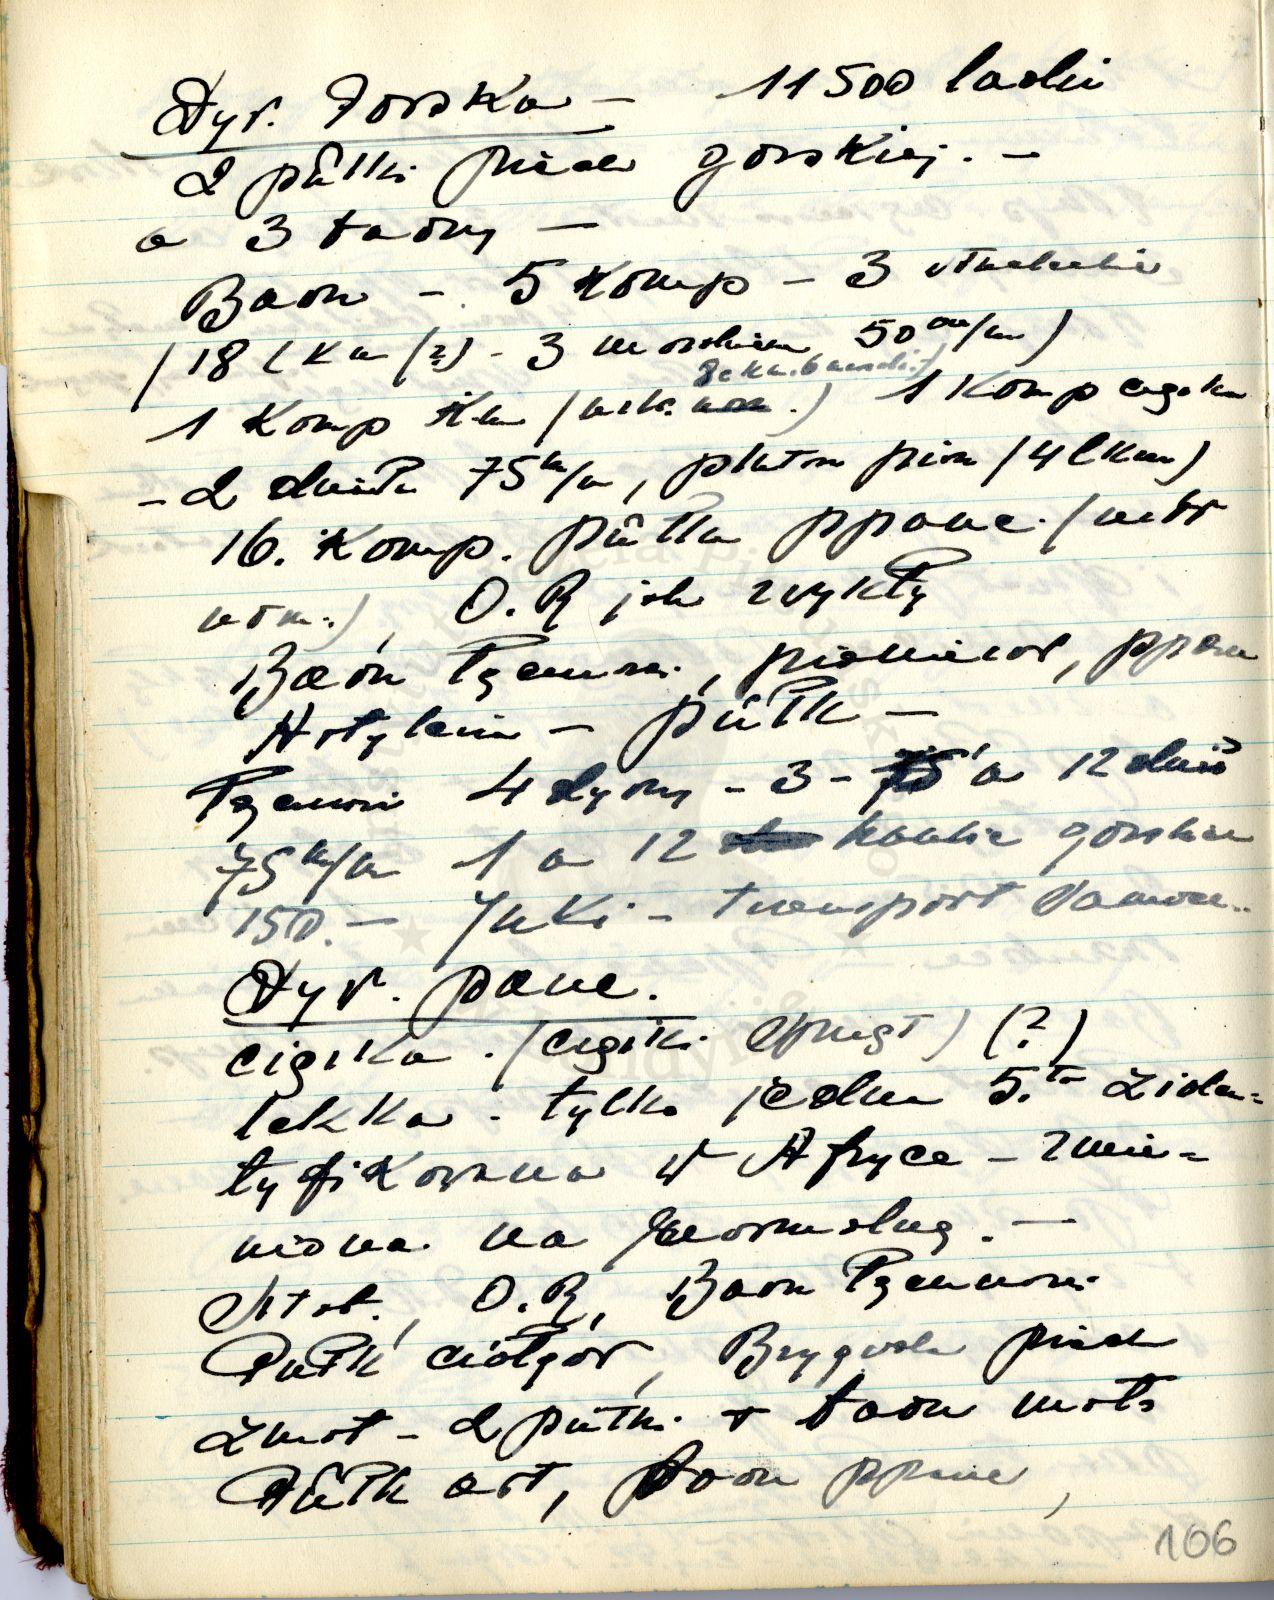 Dyw. Górska — 11500 ludzi
2 pułki piech górskiej. —
a 3 baony —
Baon - 5 Komp - 3 strzeleckie
(18 lkm (?) - 3 moździerze 50 m/m)
1 Komp Km ( .) 1 Komp ciężka
- 2 działa 75 m/m, pluton pion (4 lkm)
16. Komp. pułku ppanc. (
), O.R jak zwykły
Baon łączności, pionierów, ppanc
Artyleria — pułk —
Łączności 4 dyony - 3 - a 12 dział
75 m/m 1 a 12 haubic górskich
150. — Juki - transport
Dyw. panc.
ciężka. (ciężki) (?)
lekka - tylko jedna 5.ta ziden=
tyfikowana w Afryce - zmie=
niona na normalną. —
Sztab, O.R, Baon łączności
Pułk czołgów, Brygada piech
zmot - 2 pułki + baon moto
Pułk art, baon ppanc,
106